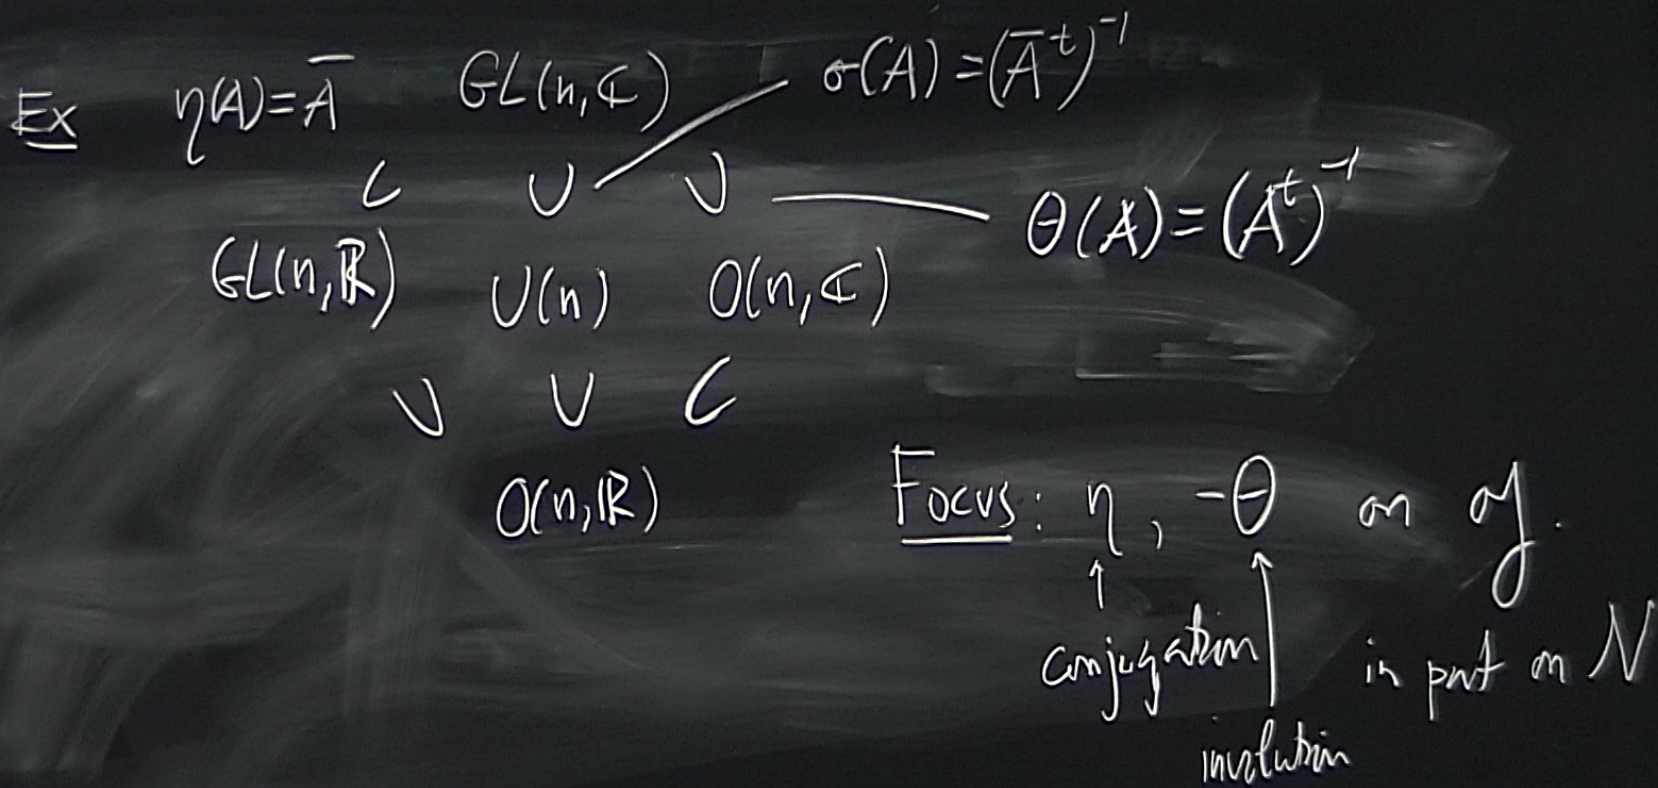 Ex η(A)=A̅ GL(n,ℂ) σ(A)=(A̅ᵗ)⁻¹
⊂ ∪ ∪ θ(A)=(Aᵗ)⁻¹
GL(n,ℝ) U(n) O(n,ℂ)
∪ ∪ ⊂
O(n,ℝ) Focus: η, -θ on 𝔤.
conjugation in part on N
involution